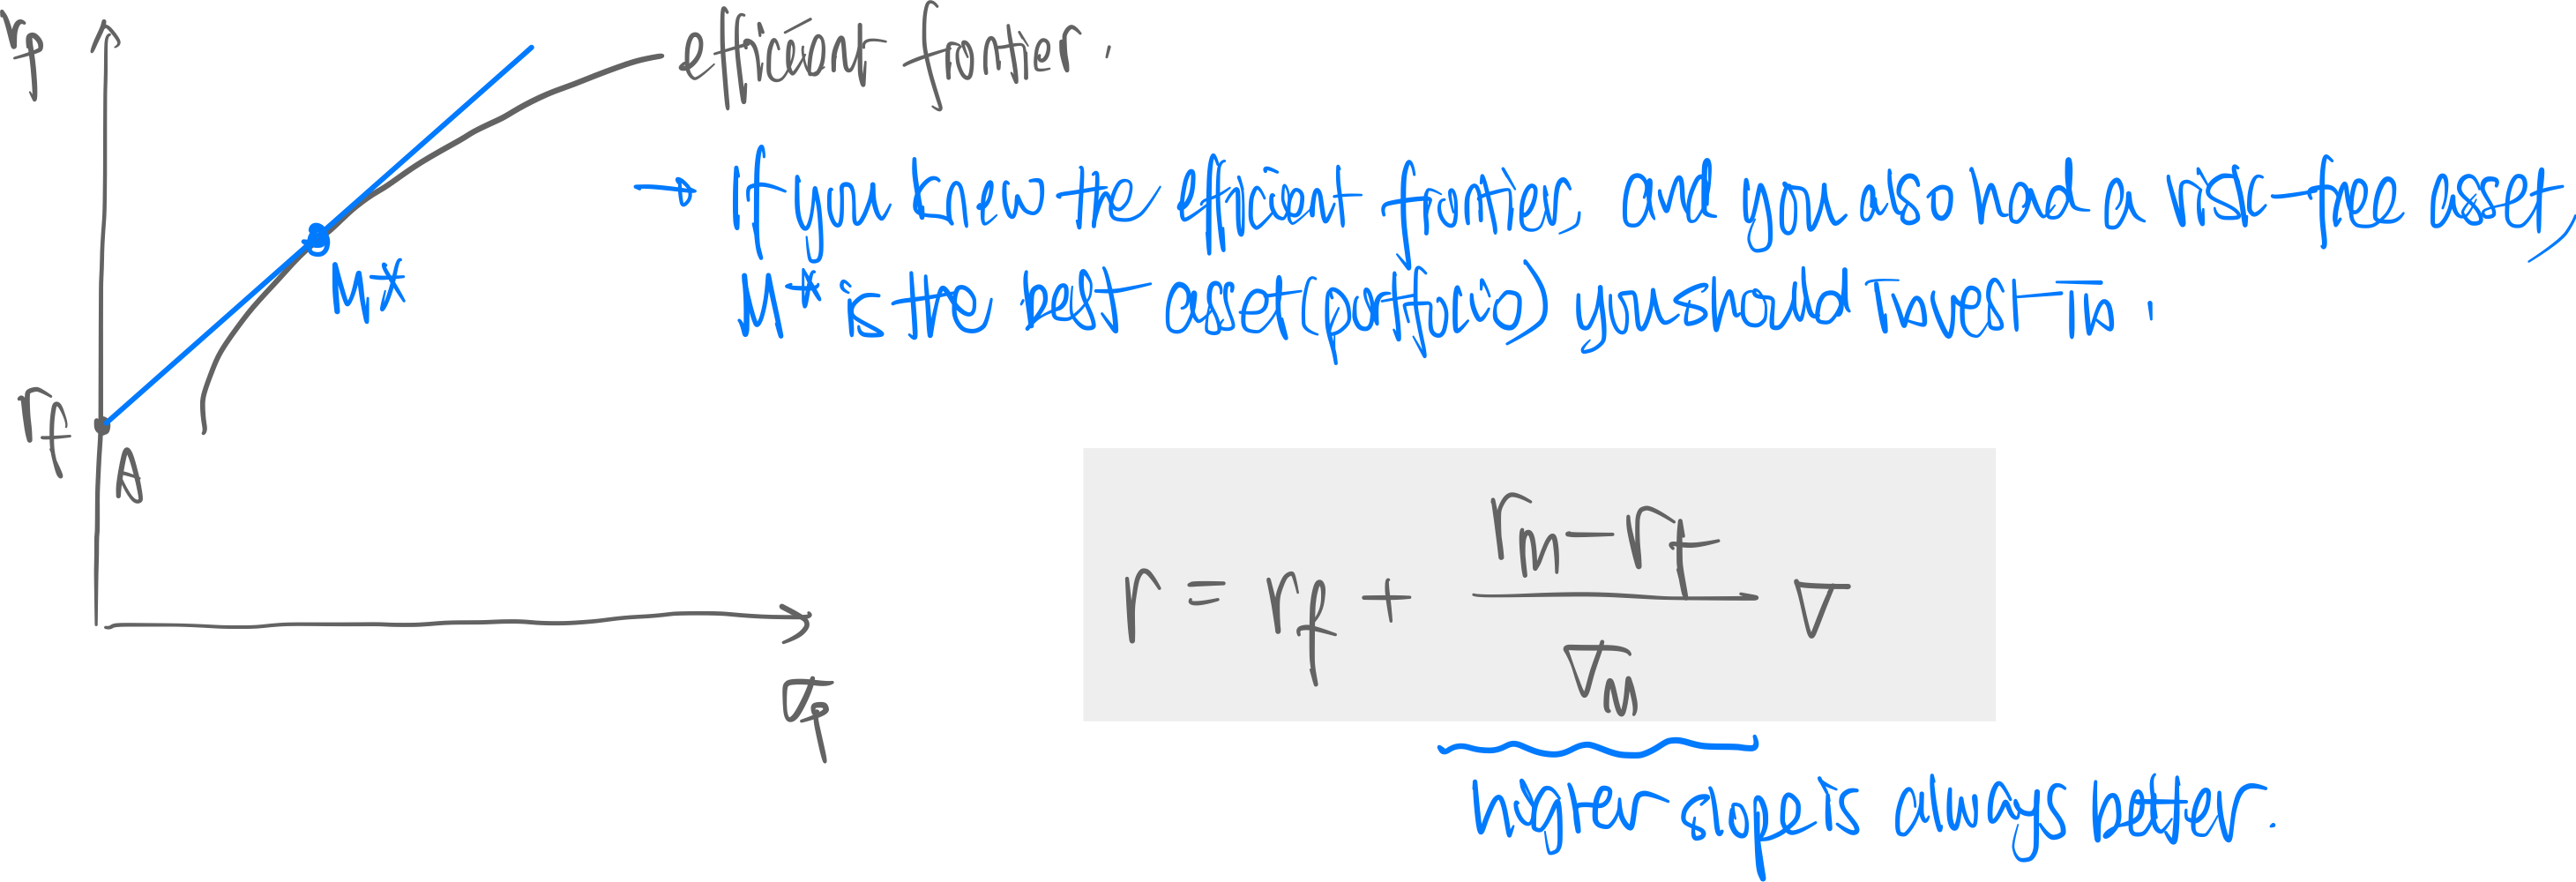 r_p
efficient frontier.
→ If you knew the efficient frontier, and you also had a risk-free asset,
M* is the best asset (portfolio) you should invest in.
M*
r_f
A
r = r_f + \frac{r_m - r_f}{σ_m} σ
σ_p
higher slope is always better.